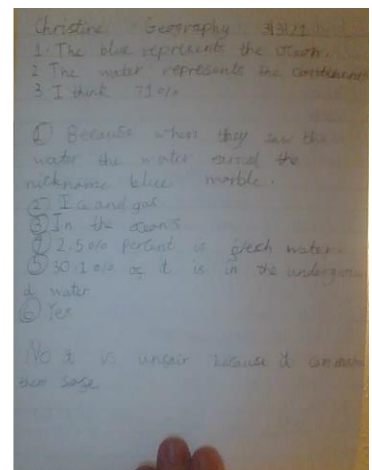 Christine Geography
1. The blue represents the ocean.
2 The water represents the continent
3 I think 71%
① Because when they saw the
water the water earned the
nickname blue marble.
② Ice and gas
③ In the oceans
④ 2.5% percent is fresh water.
⑤ 30.1% of it is in the undergroun
d water
⑥ Yes
No it is unfair because it can make
them safe